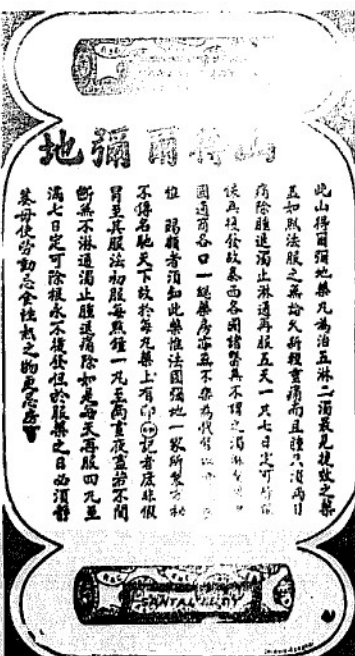 山得爾彌地
此山得爾彌地藥凡為治五淋二濁最見捷效之藥
蓋如照法服之無論久新輕重痛而且腫只須兩日
痛除腫退濁止淋通再服五天一共七日定可除根
後再復發故泰西各國諸醫無不 之濁淋
國通商各口一總藥房亦無不樂為代售以
位 賜顧者須知此藥惟法國彌地一家所製方
不得名馳天下故於每丸藥上有印記者庶非假
冒至其服法初服每點鐘一丸至兩晝夜蓋若不間
斷無不淋通濁止腫退痛除如是每天再服四丸至
滿七日定可除根永不復發但於服藥之日必須靜
養毋使勞動忌食性熱之物更忌房事
SANTAL MIDY